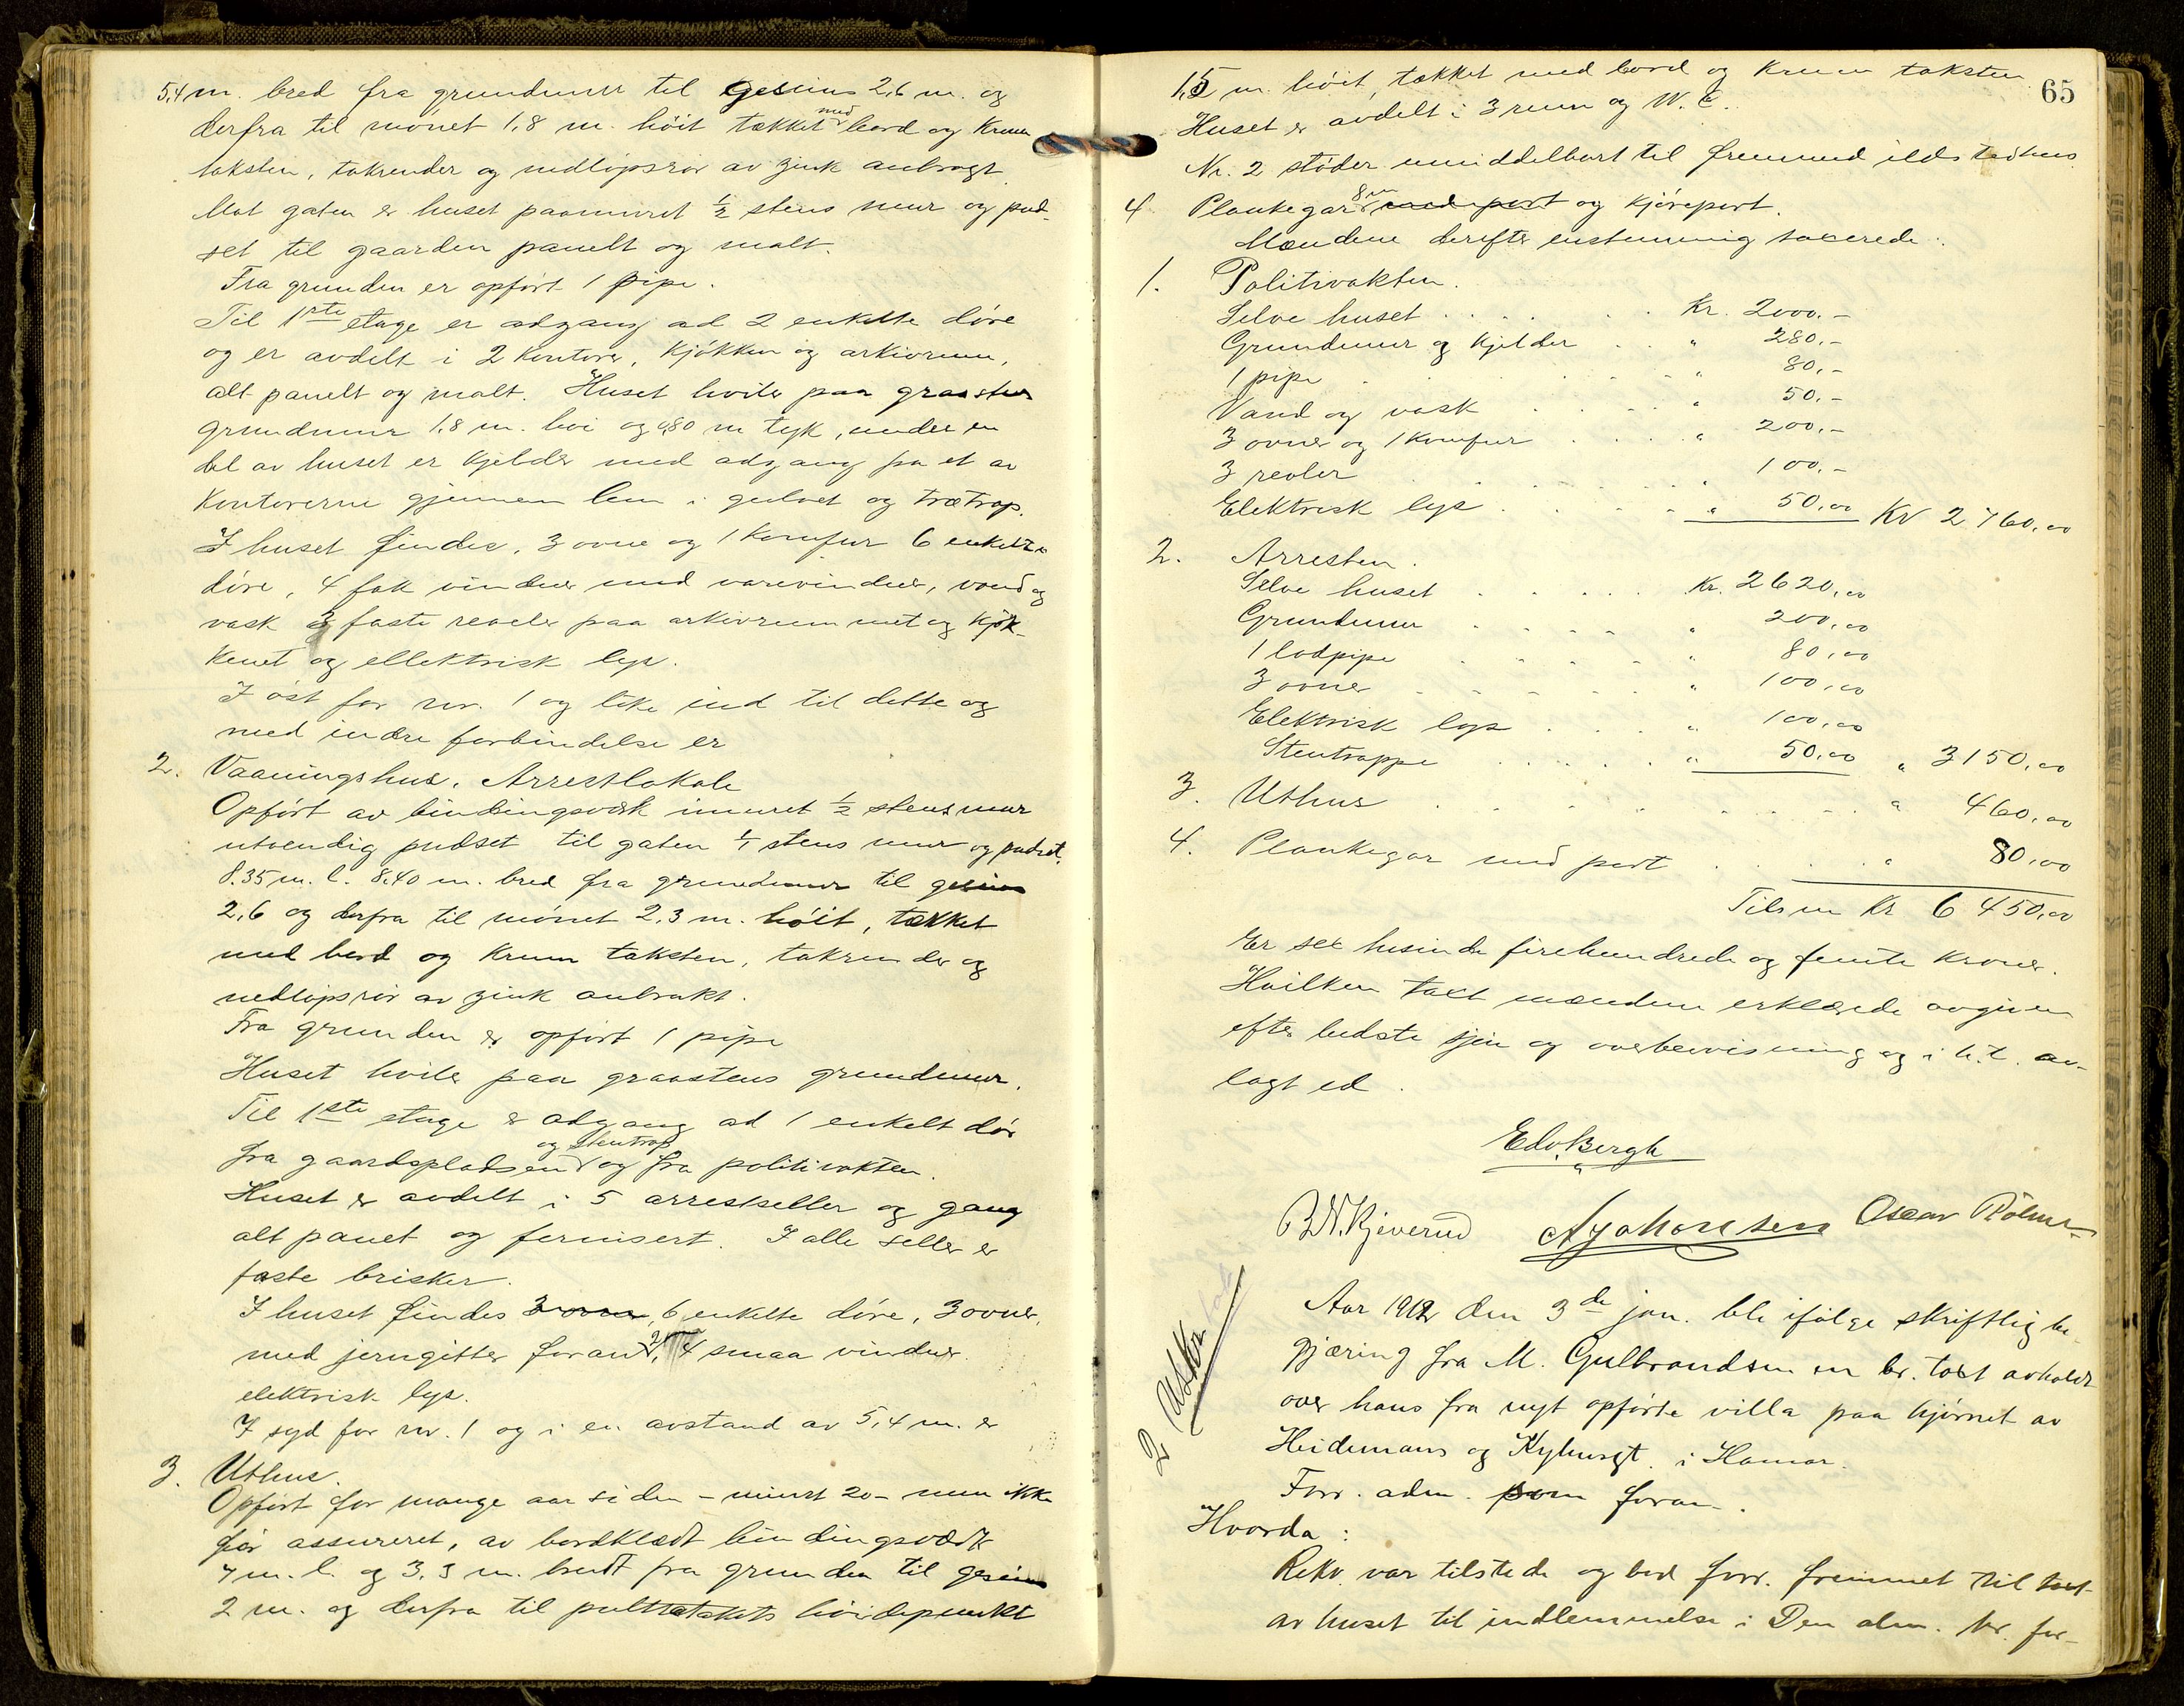 5,4 m. bred fra grundmur til gesims 2,6 m. og
derfra til mønet 1,8 m. høit tækket med bord og krum
taksten, takrender og nedløpsrør av zink anbragt
Mot gaten er huset paamuret ½ stens mur og pud-
set til gaarden panelt og malt.
Fra grunden er opført 1 pipe.
Til 1ste etage er adgang ad 2 enkelte døre
og er avdelt i 2 kontorer, kjøkken og arkivrum,
alt panelt og malt. Huset hviler paa graasten
grundmur 1,8 m. høi og 0,80 m tyk, under en
del av huset er kjelder med adgang fra et av
kontorerne gjennem lem i gulvet og trætrap.
I huset findes, 3 ovne og 1 komfur 6 enkelte
døre, 4 fak vinduer med varevinduer, vand og
vask 3 faste reoler paa arkivrummet og kjøk-
kenet og ellektrisk lys.
I øst for nr. 1 og like ind til dette og
med indre forbindelse er
2. Vaaningshus. Arrestlokale
Opført av bindingsværk imuret ½ stens mur
utvendig pudset til gaten 1/1 stens mur og pudset.
8.35 m. l. 8,40 m. bred fra grundmur til gesims
2,6 og derfra til mønet 2,3 m. høit, tækket
med bord og krum taksten, takrender og
nedløpsrør av zink anbrakt.
Fra grunden er opført 1 pipe
Huset hviler paa graastens grundmur.
Til 1ste etage er adgang ad 1 enkelt dør
fra gaardspladsen og stentrap og fra politivakten.
Huset er avdelt i 5 arrestseller og gang
alt panet og fernisert. I alle seller er
faste brisker.
I huset findes 3 ovne, 6 enkelte døre, 3 ovner,
med jerngitter foran 2, 4 smaa vinduer
elektrisk lys.
I syd for nr. 1 og i en avstand av 5,4 m. er
3. Uthus.
Opført for mange aar siden – minst 20 – men ikke
før assureret, av bordklædt bindingsværk
7 m. l. og 3,3 m. bredt fra grunden til gesims
2 m. og derfra til pulttatakets høidepunkt
65
1,5 m. høit, tækket med bord og krum taksten
Huset er avdelt i 3 rum og W. C.
Nr. 2 støder umiddelbart til fremmed ildstedhus
4 Plankegar 8 m med port og kjøreport.
Mændene derefter enstemmig taxerede:
1. Politivakten.
Selve huset . . . . Kr. 2000.-
Grundmur og kjelder . . " 280.-
1 pipe . . . . " 80.-
Vand og vask . . . . " 50.-
3 ovner og 1 komfur . . . . " 200.-
3 reoler . . . . " 100.-
Elektrisk lys . . . . " 50,00 Kr 2760,00
2. Arresten.
Selve huset . . . . Kr. 2620,00
Grundmur . . . . " 200,00
1 lodpipe . . . . " 80,00
3 ovner . . . . " 100,00
Elektrisk lys . . . . " 100,00
Stentrappe . . . . " 50,00 " 3150,00
3. Uthus . . . . " 460,00
4. Plankegar med port . . . . " 80,00
Tilsm Kr 6 450,00
Er sex tusinde firehundrede og femti kroner.
Hvilken taxt mændene erklærede avgiven
efter bedste sjøn og overbevisning og i h.t. av-
lagt ed.
Edv. Bergh
B. N. Kjeverud A Johansen Oscar
2 Utskr
Aar 1912 den 3de jan. ble ifølge skriftlig be-
gjæring fra M. Gulbrandsen en br. taxt avholdt
over hans fra nyt opførte villa paa hjørnet av
Heidemans og Kyhusgt. i Hamar.
Forr. adm. som foran.
Hvorda:
Rekv. var tilstede og bad forr. fremmet til taxt
av huset til indlemmelse i Den alm. br. for-